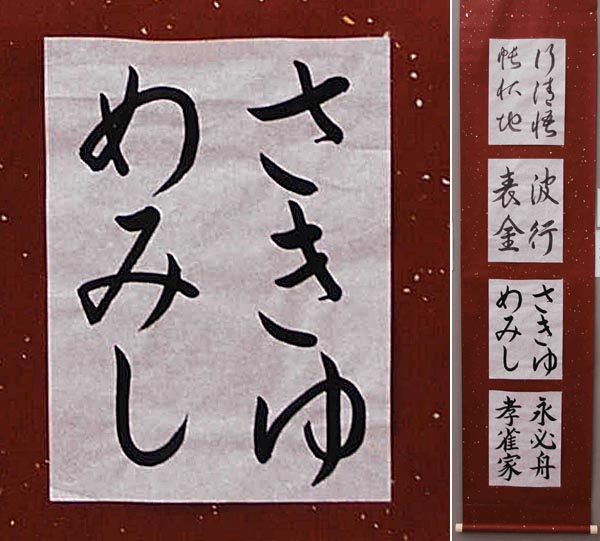 さきゆ
めみし
行清悟
波行
表金
さきゆ
めみし
永必舟
孝雀家